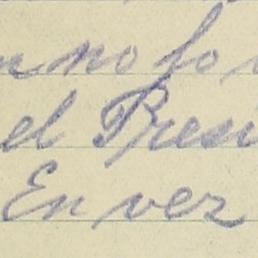 no fo
el Presi
En vez